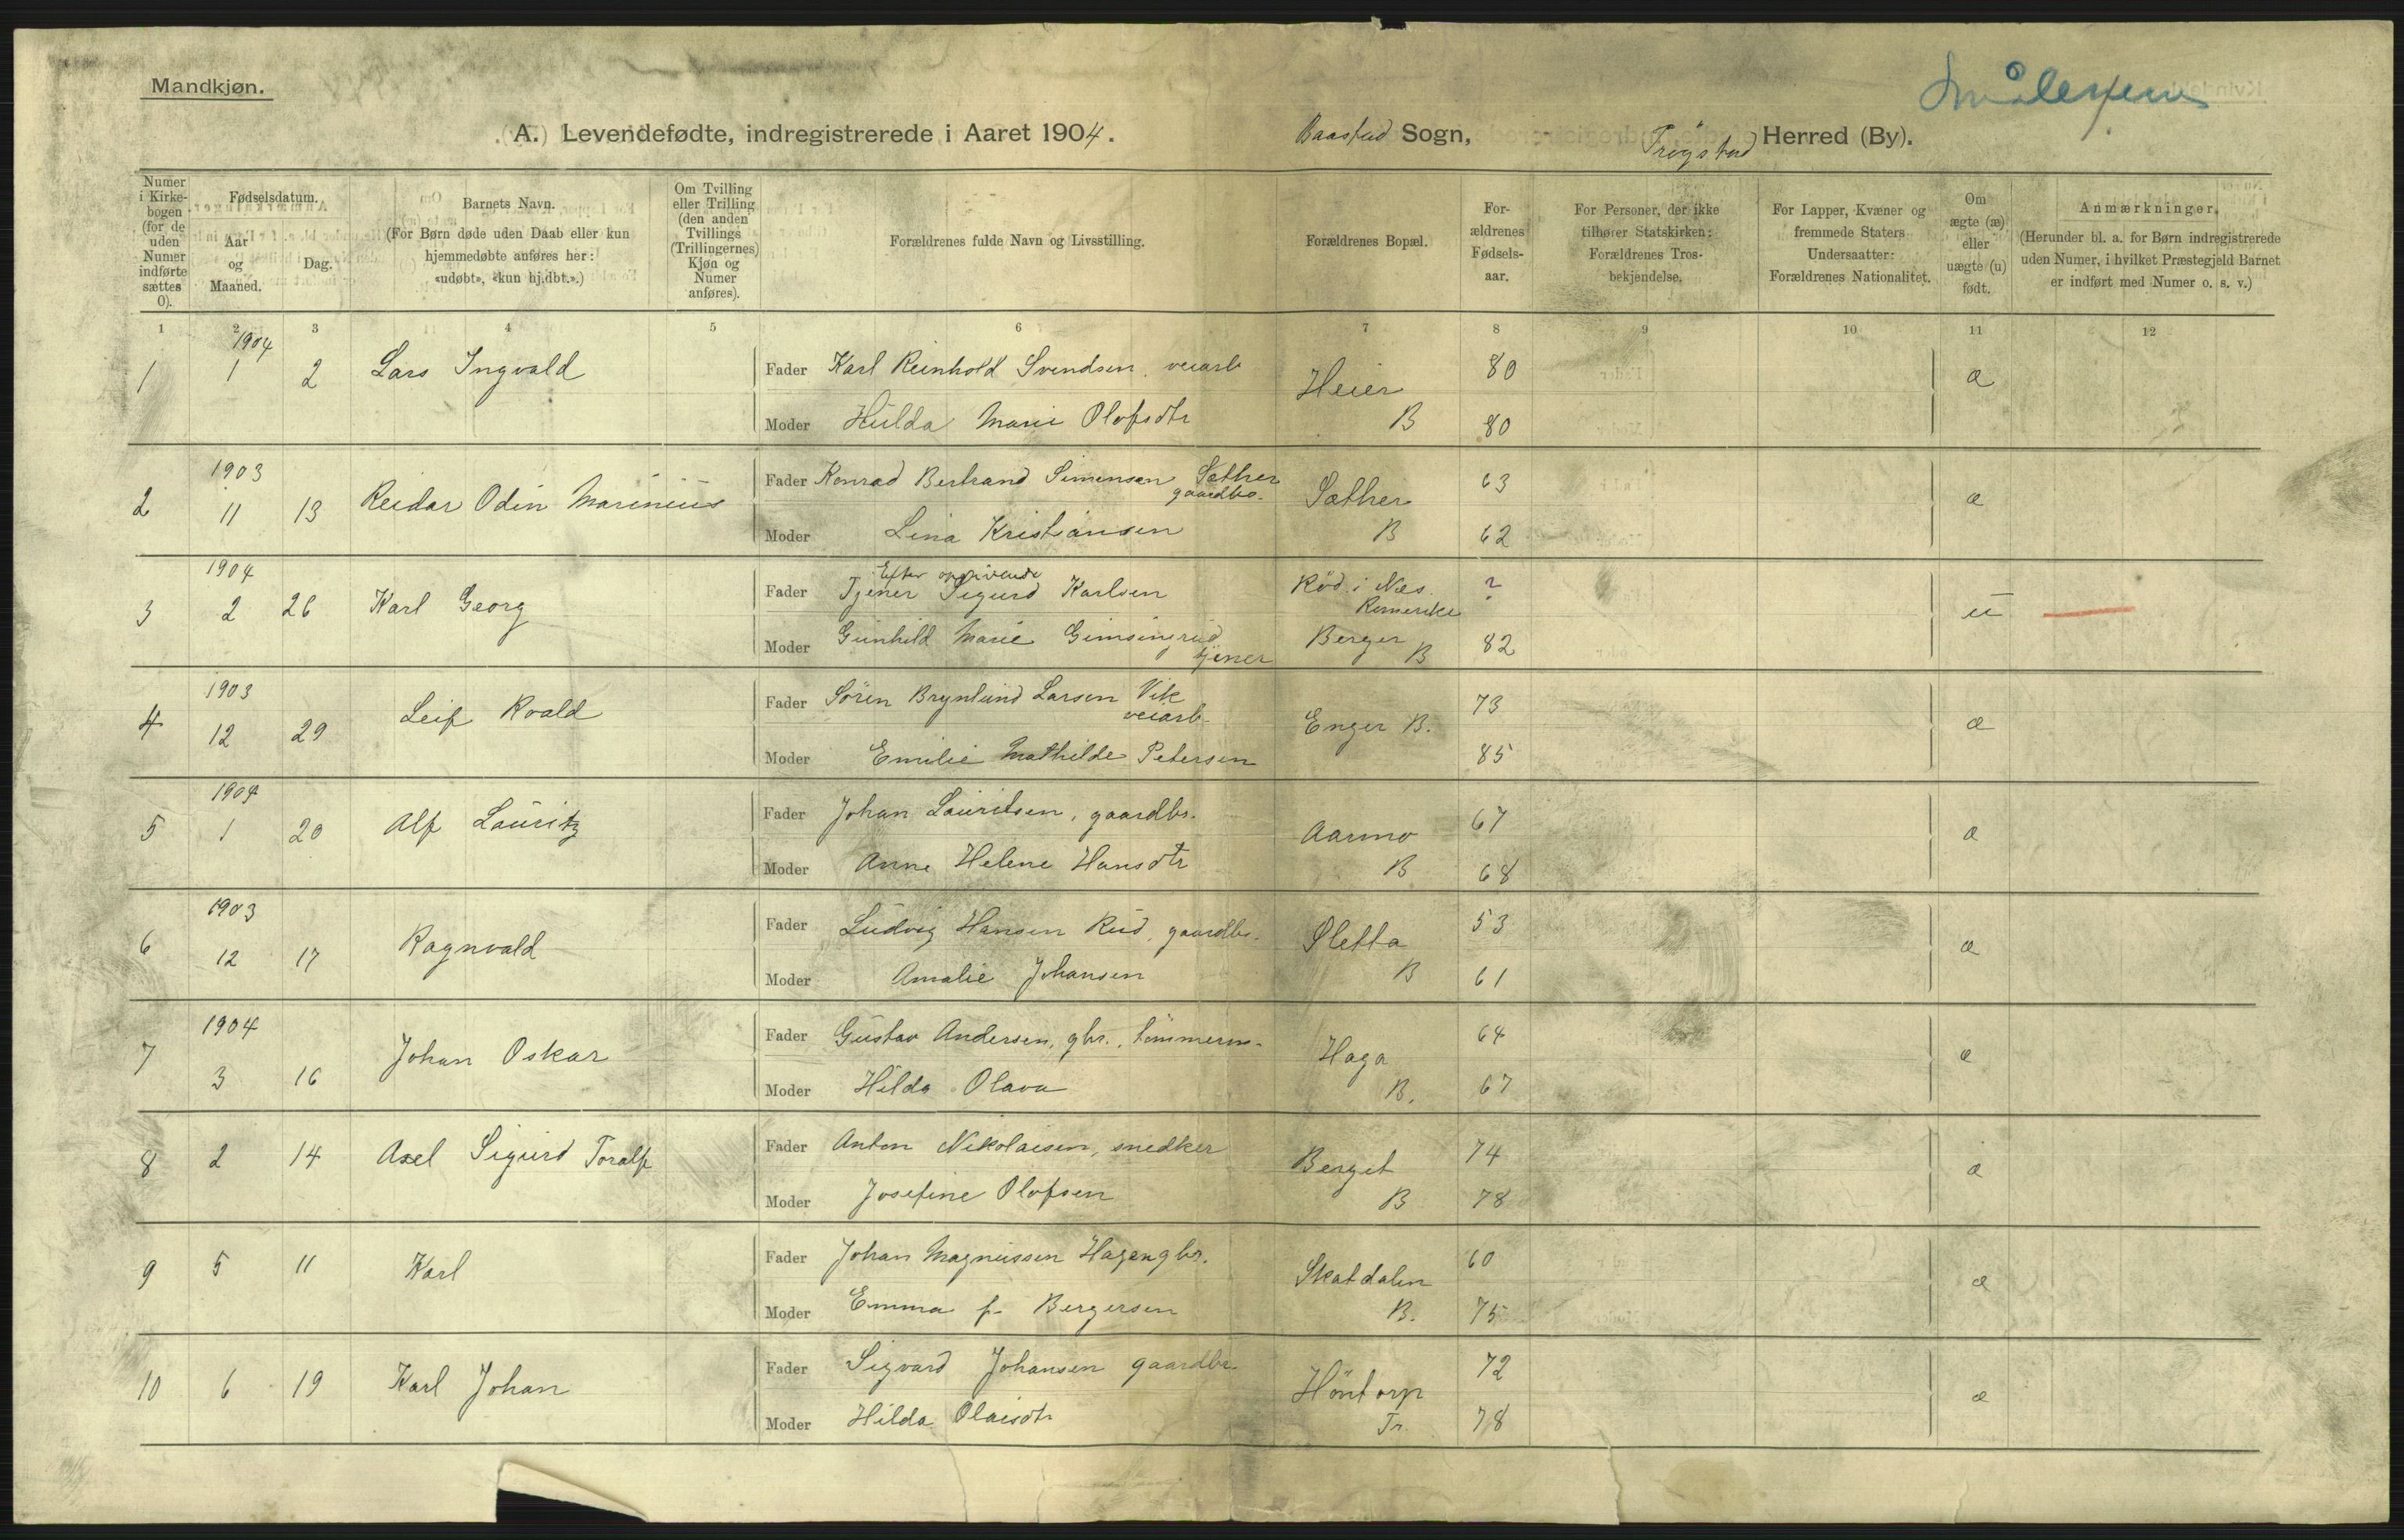 Mandkjøn.
Smålenene
A. Levendefødte, indregistrerede i Aaret 1904. Baastad Sogn, Trøgstad Herred (By).
Numer i Kirkebogen (for de uden Numer indførte sættes 0).
Fødselsdatum.
Aar og Maaned.
Dag.
Barnets Navn.
(For Børn døde uden Daab eller kun hjemmedøbte anføres her: «udøbt», «kun hj.dbt.».)
Om Tvilling eller Trilling (den anden Tvillings (Trillingernes) Kjøn og Numer anføres).
Forældrenes fulde Navn og Livsstilling.
Forældrenes Bopæl.
Forældrenes Fødselsaar.
For Personer, der ikke tilhører Statskirken: Forældrenes Trosbekjendelse.
For Lapper, Kvæner og fremmede Staters Undersaatter: Forældrenes Nationalitet.
Om ægte (æ) eller uægte (u) født.
Anmærkninger.
(Herunder bl. a. for Børn indregistrerede uden Numer, i hvilket Præstegjeld Barnet er indført med Numer o. s. v.)
1 2 3 4 5 6 7 8 9 10 11 12
1904
1 1 2 Lars Ingvald Fader Karl Reinhold Svendsen, veiarb Heier 80 æ
Moder Hulda Marie Olofsdtr B 80
1903
2 11 13 Reidar Odin Marinius Fader Konrad Bertrand Simensen Sæther gaardbr. Sæther 63 æ
Moder Lina Kristiansen B 62
1904
3 2 26 Karl Georg Fader Efter opgivende Tjener Sigurd Karlsen Rød i Næs Romerike ? u
Moder Gunhild Marie Gimsingrud tjener Berger B 82
1903
4 12 29 Leif Roald Fader Søren Brynlund Larsen Vik veiarb. Enger B. 73 æ
Moder Emilie Mathilde Petersen 85
1904
5 1 20 Alf Lauritz Fader Johan Lauritsen, gaardbr. Aarmo 67 æ
Moder Anne Helene Hansdtr B 68
1903
6 12 17 Ragnvald Fader Ludvig Hansen Rud, gaardbr. Sletta 53 æ
Moder Amalie Johansen B 61
1904
7 3 16 Johan Oskar Fader Gustav Andersen, gbr., tømmerm. Haga 64 æ
Moder Hilda Olava B. 67
8 2 14 Axel Sigurd Toralf Fader Anton Nikolaisen, snedker Berget 74 æ
Moder Josefine Olofsen B 78
9 5 11 Karl Fader Johan Magnussen Hagen gbr. Skatdalen 60 æ
Moder Emma f. Bergersen B. 75
10 6 19 Karl Johan Fader Sigvard Johansen gaardbr. Høntorp 72 æ
Moder Hilda Olaisdtr Tr. 78